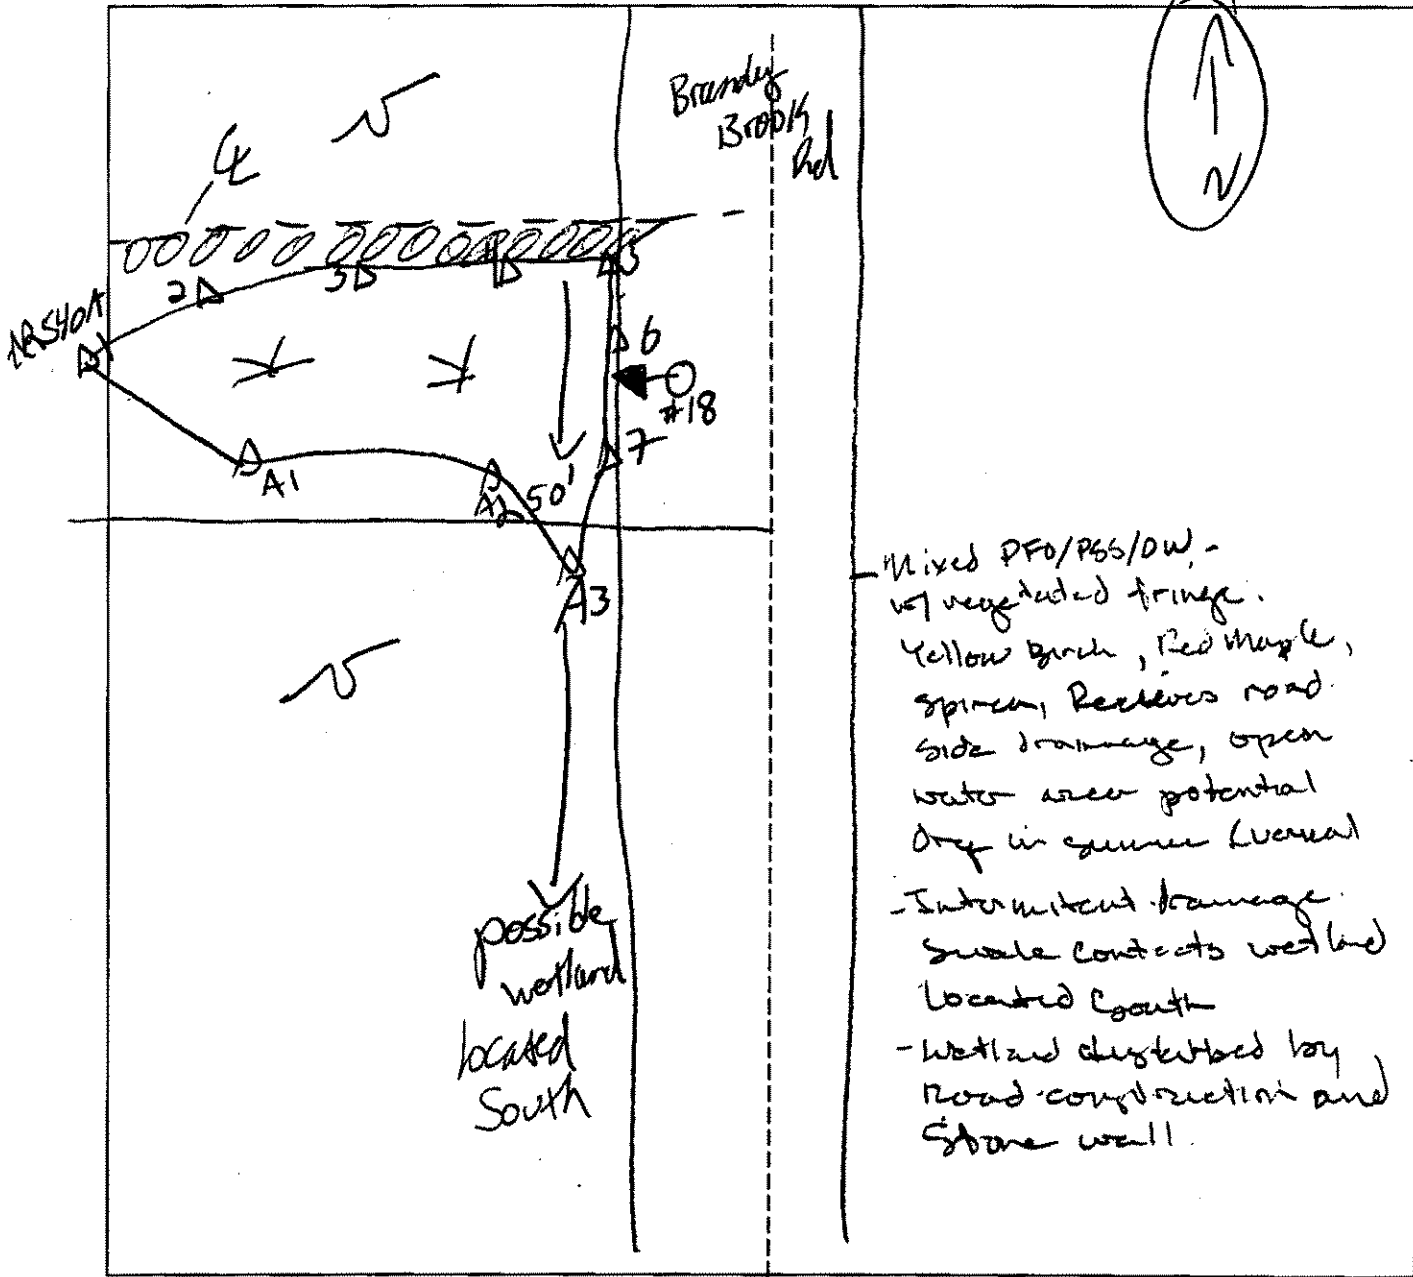 N
Brandy
Brook
Rd
CL
2
3
4
5
6
#18
7
A1
A2
50'
A3
possible
wetland
located
South
- Mixed PFO/PSS/OW -
w/ vegetated fringe.
Yellow Birch, Red Maple,
Spirea, Recieves road
side drainage, open
water area potential
Dry in summer (vernal
- Intermitent drainage
swale contacts wetland
located South
- Wetland disturbed by
Road construction and
Stone wall.